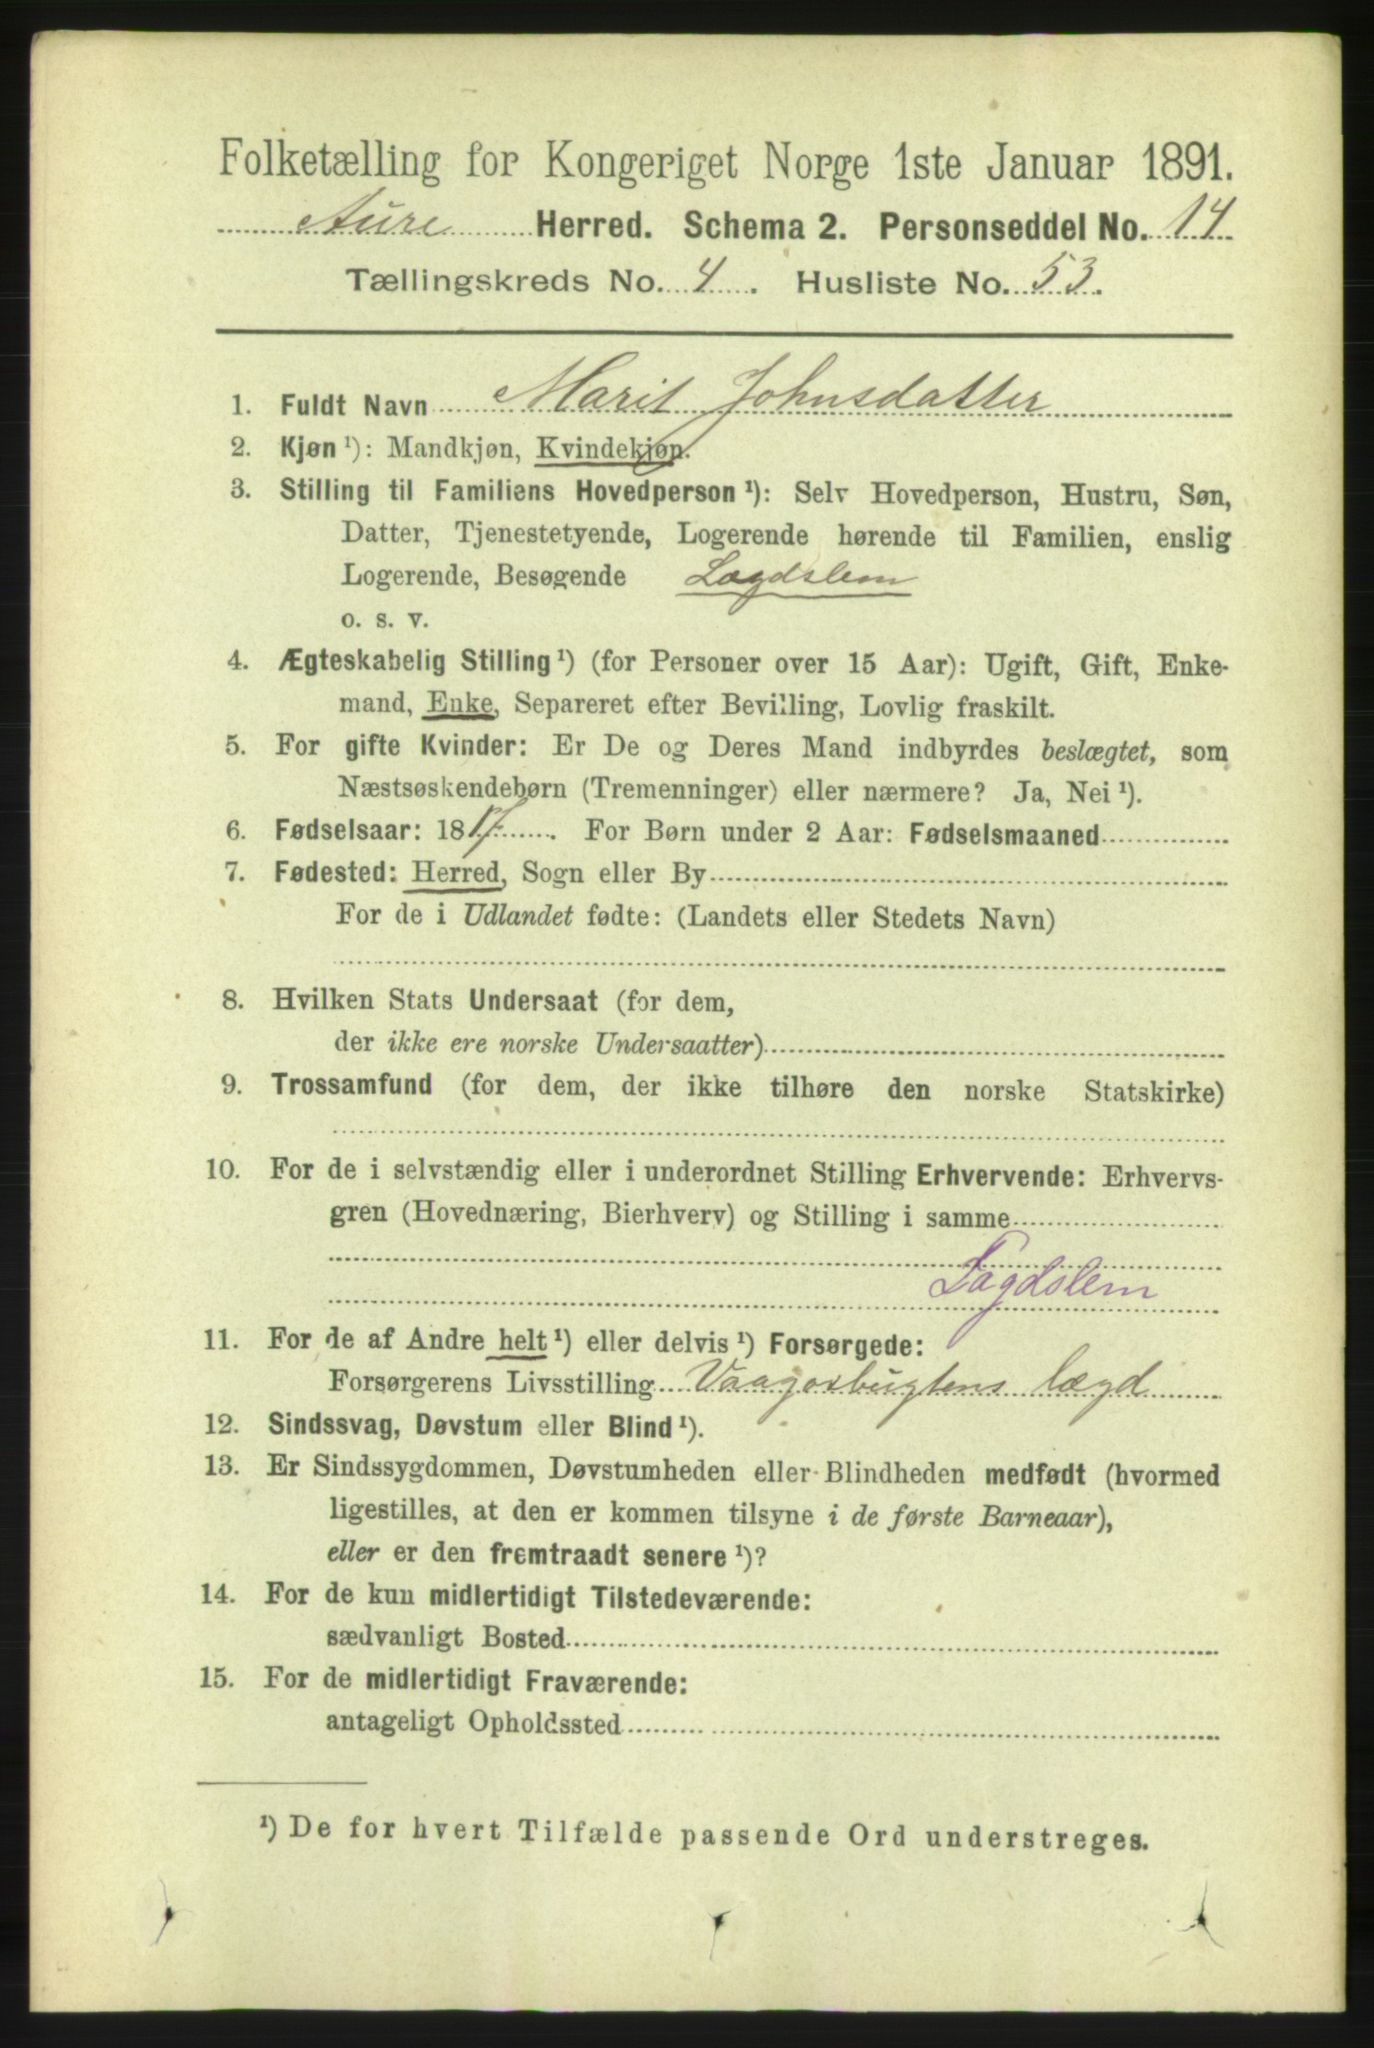 Folketælling for Kongeriget Norge 1ste Januar 1891.
Aure Herred. Schema 2. Personseddel No. 14
Tællingskreds No. 4. Husliste No. 53.
1. Fuldt Navn Marit Johnsdatter
2. Kjøn ¹): Mandkjøn, Kvindekjøn.
3. Stilling til Familiens Hovedperson ¹): Selv Hovedperson, Hustru, Søn,
Datter, Tjenestetyende, Logerende hørende til Familien, enslig
Logerende, Besøgende Lægdslem
o. s. v.
4. Ægteskabelig Stilling ¹) (for Personer over 15 Aar): Ugift, Gift, Enke-
mand, Enke, Separeret efter Bevilling, Lovlig fraskilt.
5. For gifte Kvinder: Er De og Deres Mand indbyrdes beslægtet, som
Næstsøskendebørn (Tremenninger) eller nærmere? Ja, Nei ¹).
6. Fødselsaar: 1817. For Børn under 2 Aar: Fødselsmaaned
7. Fødested: Herred, Sogn eller By
For de i Udlandet fødte: (Landets eller Stedets Navn)
8. Hvilken Stats Undersaat (for dem,
der ikke ere norske Undersaatter)
9. Trossamfund (for dem, der ikke tilhøre den norske Statskirke)
10. For de i selvstændig eller i underordnet Stilling Erhvervende: Erhvervs-
gren (Hovednæring, Bierhverv) og Stilling i samme
Lægdslem
11. For de af Andre helt ¹) eller delvis ¹) Forsørgede:
Forsørgerens Livsstilling Vaagosbugtens lægd
12. Sindssvag, Døvstum eller Blind ¹).
13. Er Sindssygdommen, Døvstumheden eller Blindheden medfødt (hvormed
ligestilles, at den er kommen tilsyne i de første Barneaar),
eller er den fremtraadt senere ¹)?
14. For de kun midlertidigt Tilstedeværende:
sædvanligt Bosted
15. For de midlertidigt Fraværende:
antageligt Opholdssted
¹) De for hvert Tilfælde passende Ord understreges.